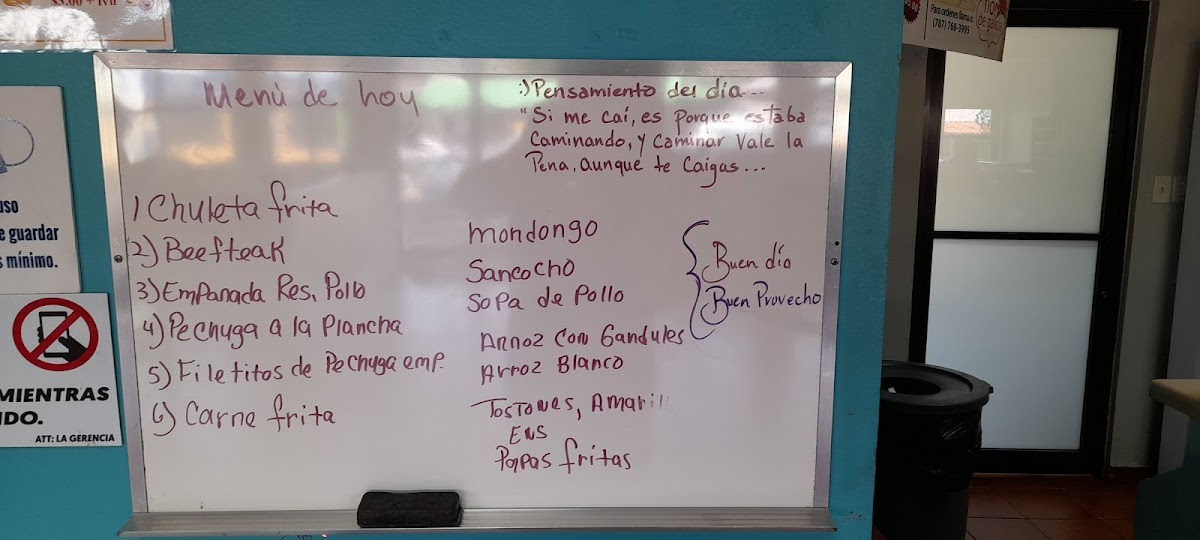 $3.00 + IVU
Para ordenes llama al:
(787) 768-3995
uso
e guardar
s mínimo.
MIENTRAS
DO.
ATT: LA GERENCIA
Menú de hoy
1 Chuleta frita
2) Beefteak
3) Empanada Res, Pollo
4) Pechuga a la Plancha
5) Filetitos de Pechuga emp.
6) Carne frita
:) Pensamiento del día...
"Si me caí, es porque estaba
Caminando, y Caminar Vale la
Pena, aunque te Caigas...
mondongo
Sancocho
Sopa de Pollo
Arroz Con Gandules
Arroz Blanco
Tostones, Amarill
ENS
Papas fritas
Buen día
Buen Provecho